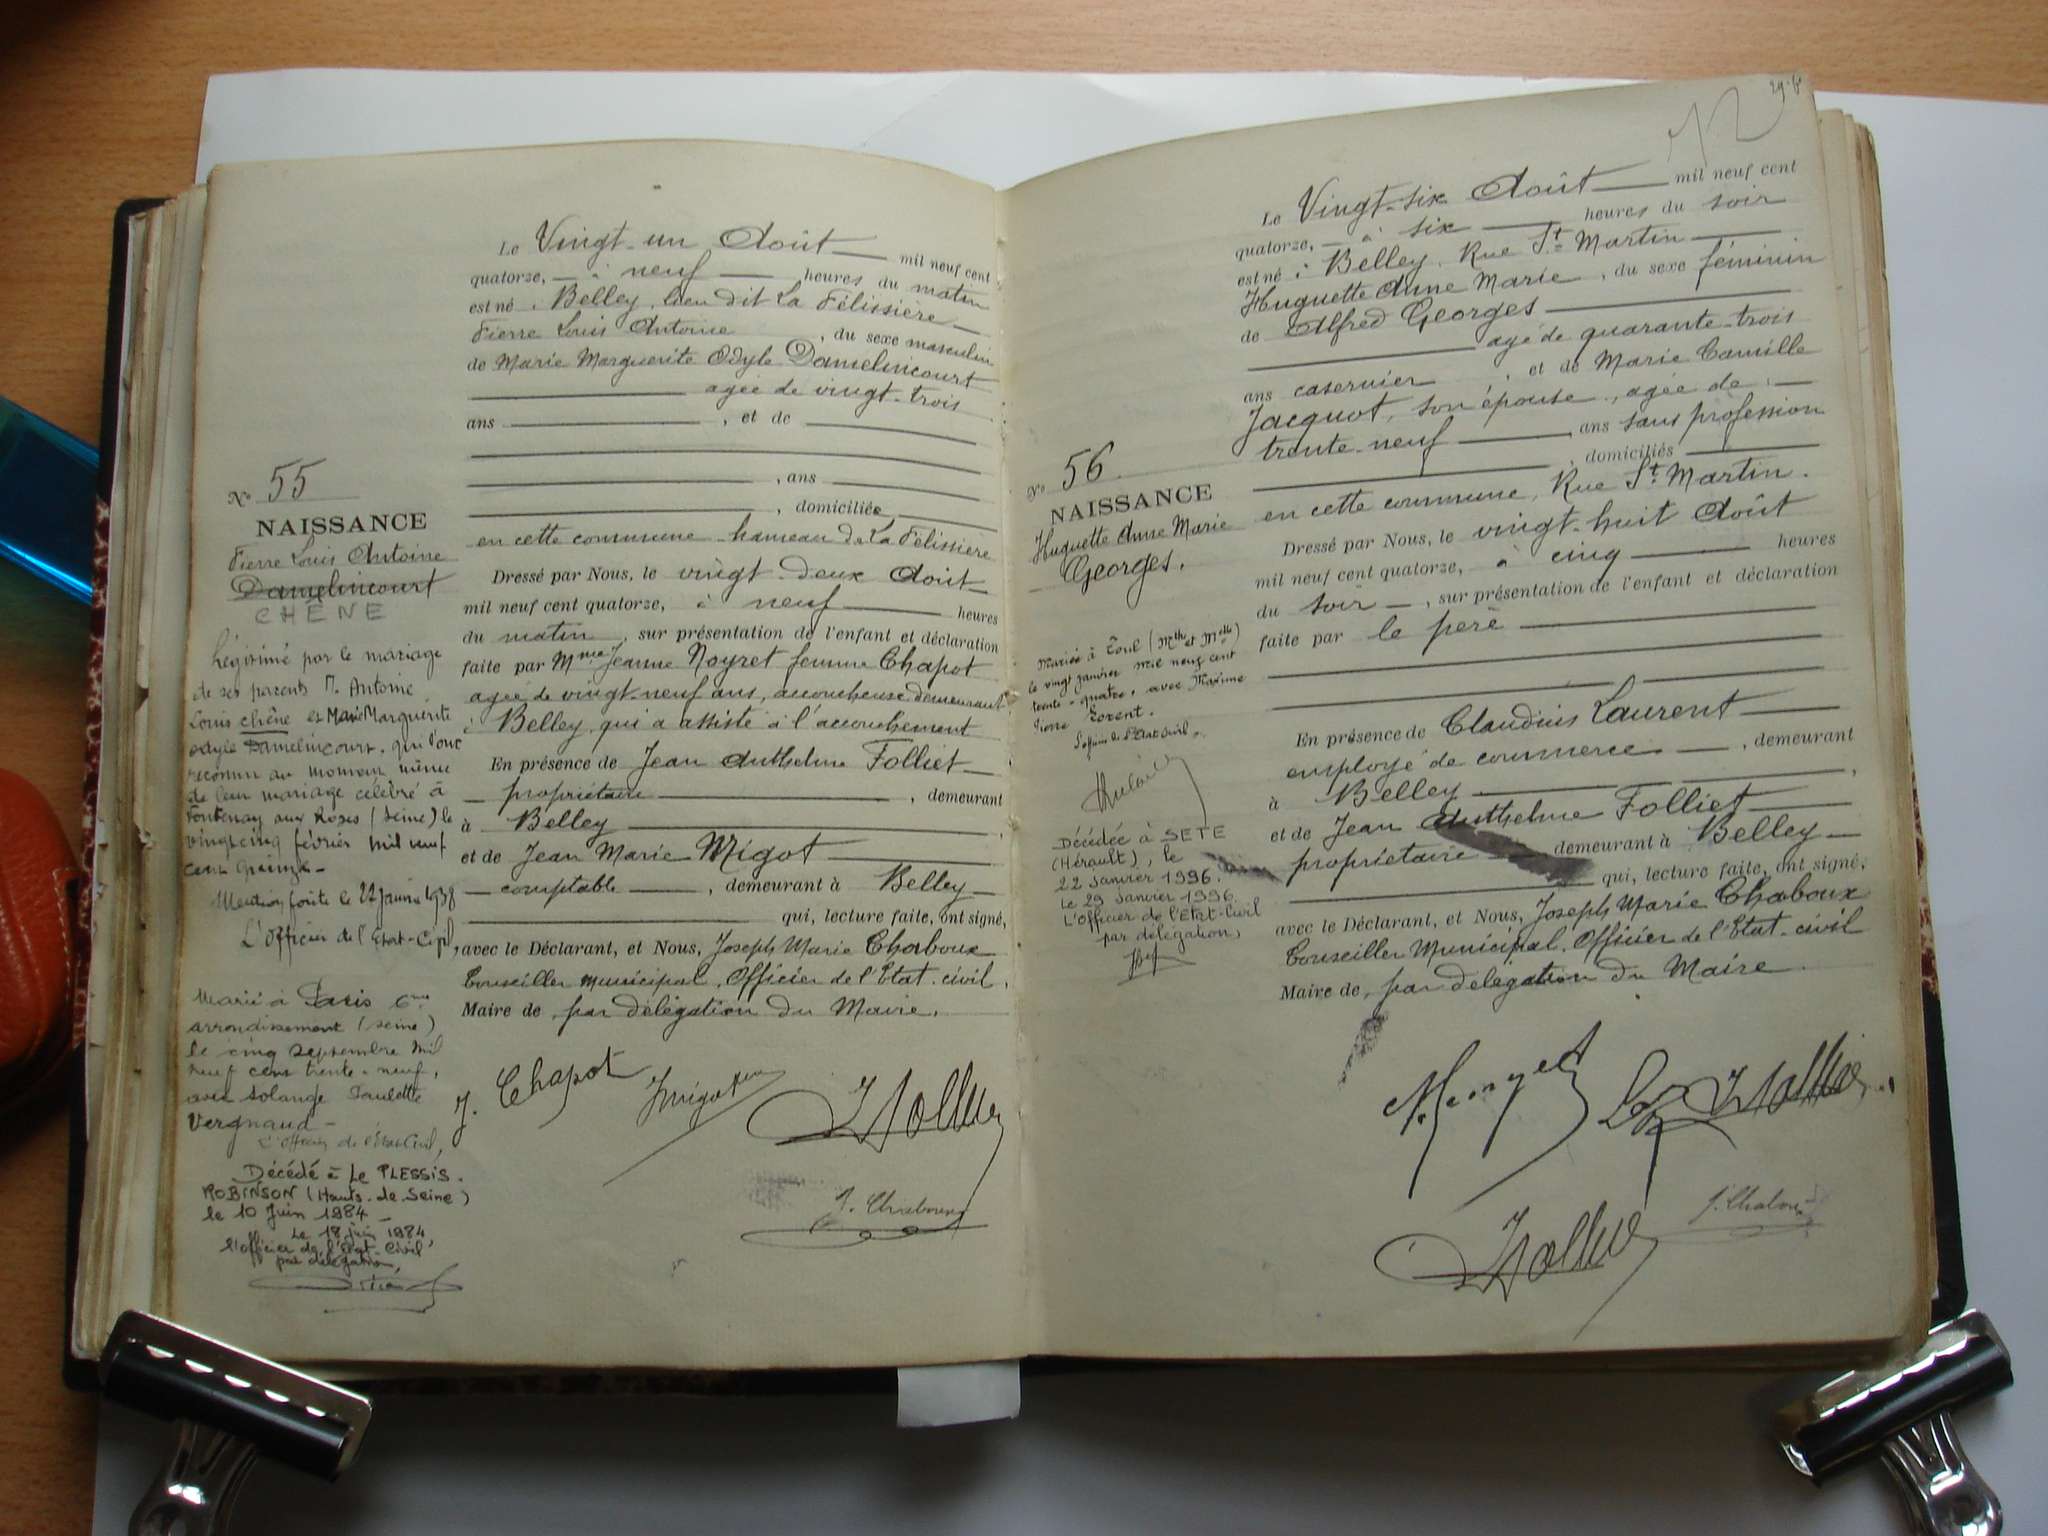 Nº 55
NAISSANCE
Pierre Louis Antoine
Damelincourt
CHÊNE
Légitimé par le mariage
de ses parents M. Antoine
Louis Chêne et Marie Marguerite
Odyle Damelincourt, qui l'ont
reconnu au moment même
de leur mariage célébré à
Fontenay aux Roses (Seine) le
vingt cinq février mil neuf
cent quinze -
Mention faite le 22 Janvier 1938
L'Officier de l'Etat-Civil,
Marié à Paris 6me
arrondissement (Seine)
le cinq Septembre mil
neuf cent trente-neuf,
avec Solange Paulette
Vergnaud -
L'Officier de l'Etat Civil,
Décédé à Le PLESSIS-
ROBINSON (Hauts-de-Seine)
le 10 Juin 1984 -
Le 18 juin 1984,
l'officier de l'Etat-Civil
par délégation,
Le Vingt-un Août mil neuf cent
quatorze, à neuf heures du matin
est né à Belley, lieu dit La Félissière
Pierre Louis Antoine, du sexe masculin
de Marie Marguerite Odyle Damelincourt
agée de vingt-trois
ans, et de
, ans
, domiciliée
en cette commune hameau de La Félissière
Dressé par Nous, le vingt-deux Août
mil neuf cent quatorze, à neuf heures
du matin, sur présentation de l'enfant et déclaration
faite par Mme Jeanne Noyret femme Chapot
agée de vingt-neuf ans, accoucheuse demeurant
à Belley, qui a assisté à l'accouchement
En présence de Jean Anthelme Folliet
propriétaire, demeurant
à Belley
et de Jean Marie Migot
comptable, demeurant à Belley
qui, lecture faite, ont signé,
avec le Déclarant, et Nous, Joseph Marie Chaboux
Conseiller municipal, Officier de l'Etat-civil,
Maire de, par délégation du Maire.
J. Chapot Jmigot Folliet
J. Chaboux
29-
Nº 56
NAISSANCE
Huguette Anne Marie
Georges.
Mariée à Toul (Mthe et Mselle)
le vingt janvier mil neuf cent
trente-quatre, avec Maxime
Pierre Lorent.
l'officier de l'Etat Civil,
Décédée à SETE
(Hérault), le
22 Janvier 1996.
Le 29 Janvier 1996.
L'Officier de l'Etat-Civil
par délégation,
Le Vingt-six Août mil neuf cent
quatorze, à six heures du soir
est né à Belley, Rue St Martin
Huguette Anne Marie, du sexe féminin
de Alfred Georges
agé de quarante-trois
ans casernier, et de Marie Camille
Jacquot, son épouse, agée de
trente-neuf ans sans profession
, domiciliés
en cette commune, Rue St Martin.
Dressé par Nous, le vingt-huit Août
mil neuf cent quatorze, à cinq heures
du soir, sur présentation de l'enfant et déclaration
faite par le père
En présence de Claudius Laurent
employé de commerce, demeurant
à Belley,
et de Jean Anthelme Folliet
propriétaire demeurant à Belley
qui, lecture faite, ont signé,
avec le Déclarant, et Nous, Joseph Marie Chaboux
Conseiller Municipal, Officier de l'Etat-civil
Maire de, par délégation du Maire.
Georges Folliet
Folliet J. Chaboux